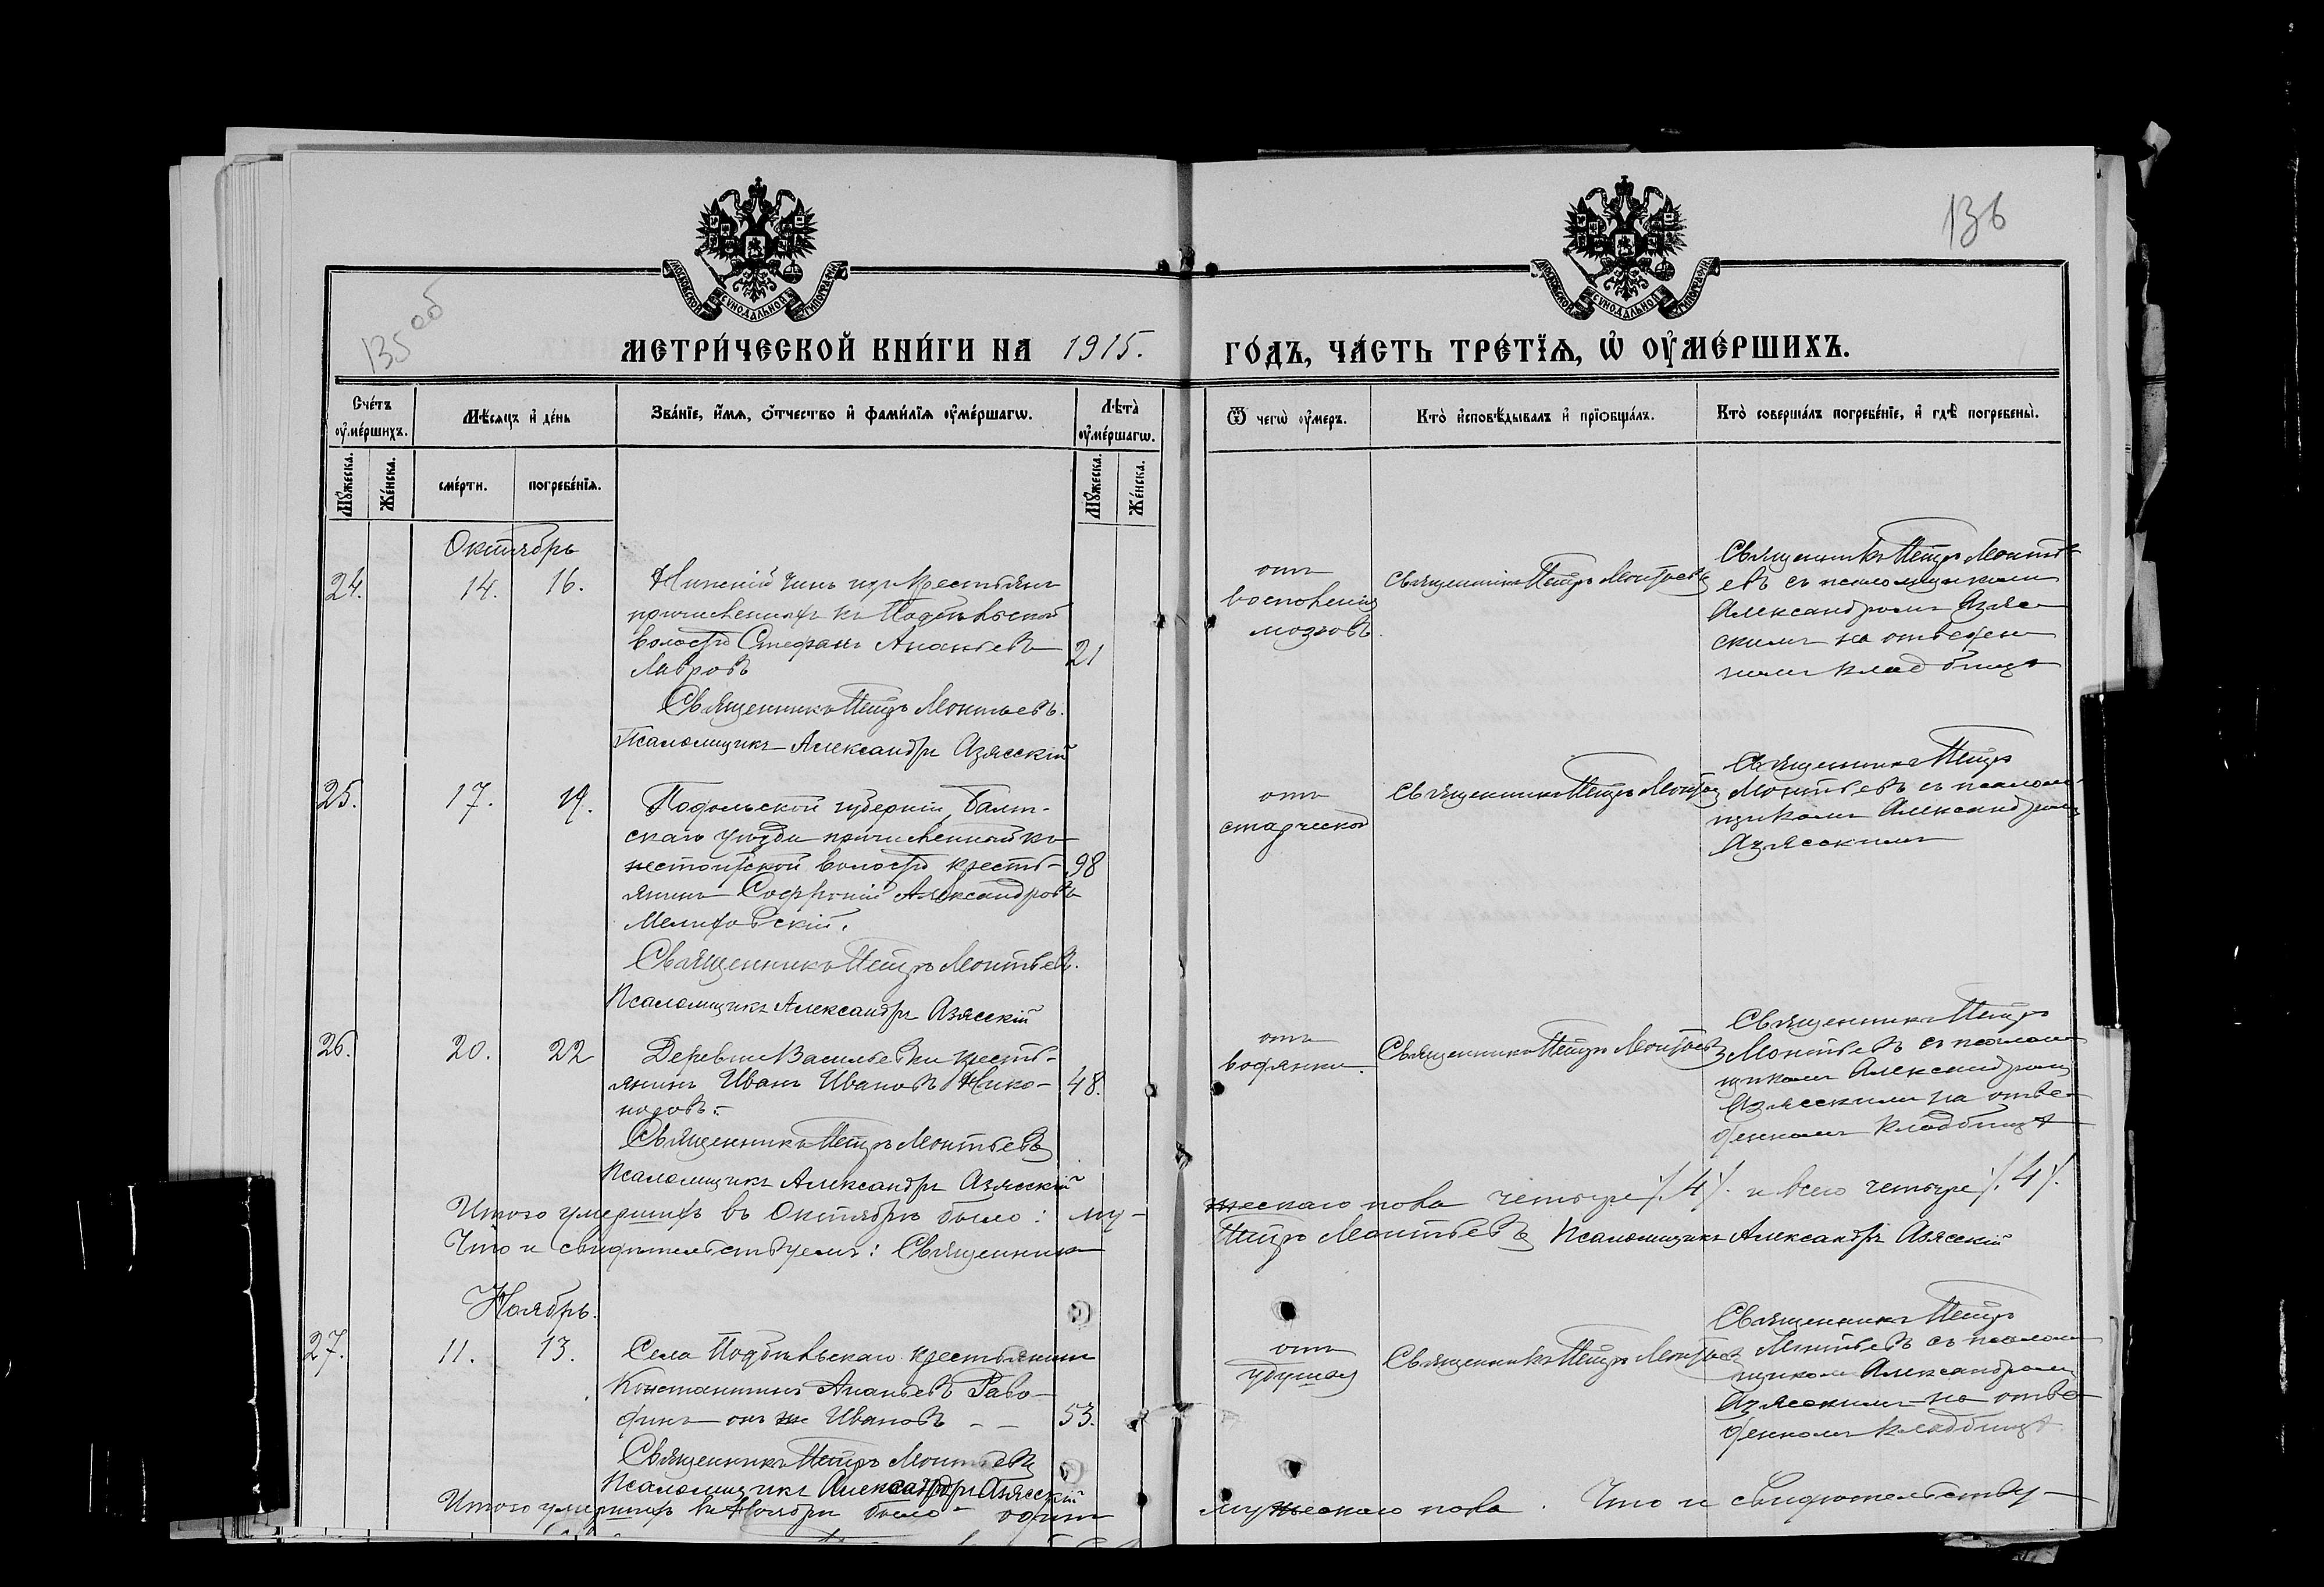 135 об
136
МОСКОВСКОЙ СѴНОДАЛЬНОЙ ТИПОГРАФІИ
МОСКОВСКОЙ СѴНОДАЛЬНОЙ ТИПОГРАФІИ
МЕТРИ́ЧЕСКОЙ КНИ́ГИ НА 1915.
ГО́ДЪ, ЧА́СТЬ ТРЕ́ТЇѦ, Ѡ҆ ОУ҆МЕ́РШИХЪ.
Сче́тъ оу҆ме́ршихъ.
Мѣ́сяцъ и҆ де́нь
Зва́нїе, и҆́мѧ, ѻ҆́тчество и҆ фами́лїѧ оу҆ме́ршагѡ.
Лѣта̀ оу҆ме́ршагѡ.
Ѿ чегѡ̀ оу҆́меръ.
Кто̀ и҆сповѣ́дывалъ и҆ прїѻбща́лъ.
Кто̀ соверша́лъ погребе́нїе, и҆ гдѣ̀ погребены̀.
Мꙋ́жеска.
Же́нска.
сме́рти.
погребе́нїѧ.
Мꙋ́жеска.
Же́нска.
Октябрь
24.
14.
16.
Нижній чинъ изъ крестьянъ
причисленныхъ къ
волости Стефанъ Ананьевъ
Лавровъ
21
Священникъ Петръ Леонтьевъ.
Псаломщикъ Александръ Азясскій
отъ
воспаленія
мозговъ.
Священникъ Петръ Леонтьевъ
Священникъ Петръ Леонть-
евъ съ псаломщикомъ
Александромъ Азяс-
скимъ на отведен-
номъ кладбищѣ
25.
17.
19.
Подольской губерніи, Балт-
скаго уѣзда причисленный къ
волости кресть-
янинъ Софроній Александровъ
98
Священникъ Петръ Леонтьевъ.
Псаломщикъ Александръ Азясскій
отъ
старческой
Священникъ Петръ Леонтьевъ
Священникъ Петръ
Леонтьевъ съ псалом-
щикомъ Александромъ
Азясскимъ
26.
20.
22
Деревни Васильевки кресть-
янинъ Иванъ Ивановъ Нико-
норовъ.
48.
Священникъ Петръ Леонтьевъ
Псаломщикъ Александръ Азясскій
отъ
водянки.
Священникъ Петръ Леонтьевъ
Священникъ Петръ
Леонтьевъ съ псалом-
щикомъ Александромъ
Азясскимъ на отве-
денномъ кладбищѣ
Итого умершихъ въ Октябрѣ было: му-
жескаго пола четыре /.4/. и всего четыре /.4/.
Что и свидѣтельствуемъ: Священникъ
Петръ Леонтьевъ Псаломщикъ Александръ Азясскій
Ноябрь.
27.
11.
13.
Села крестьянинъ
Константинъ Ананьевъ
онъ же Ивановъ - -
53.
Священникъ Петръ Леонтьевъ
Псаломщикъ Александръ Азясскій
отъ
удушья
Священникъ Петръ Леонтьевъ
Священникъ Петръ
Леонтьевъ съ псалом-
щикомъ Александромъ
Азясскимъ на отве-
денномъ кладбищѣ
Итого умершихъ въ Ноябрѣ было - одинъ
мужескаго пола. Что и свидѣтельству-